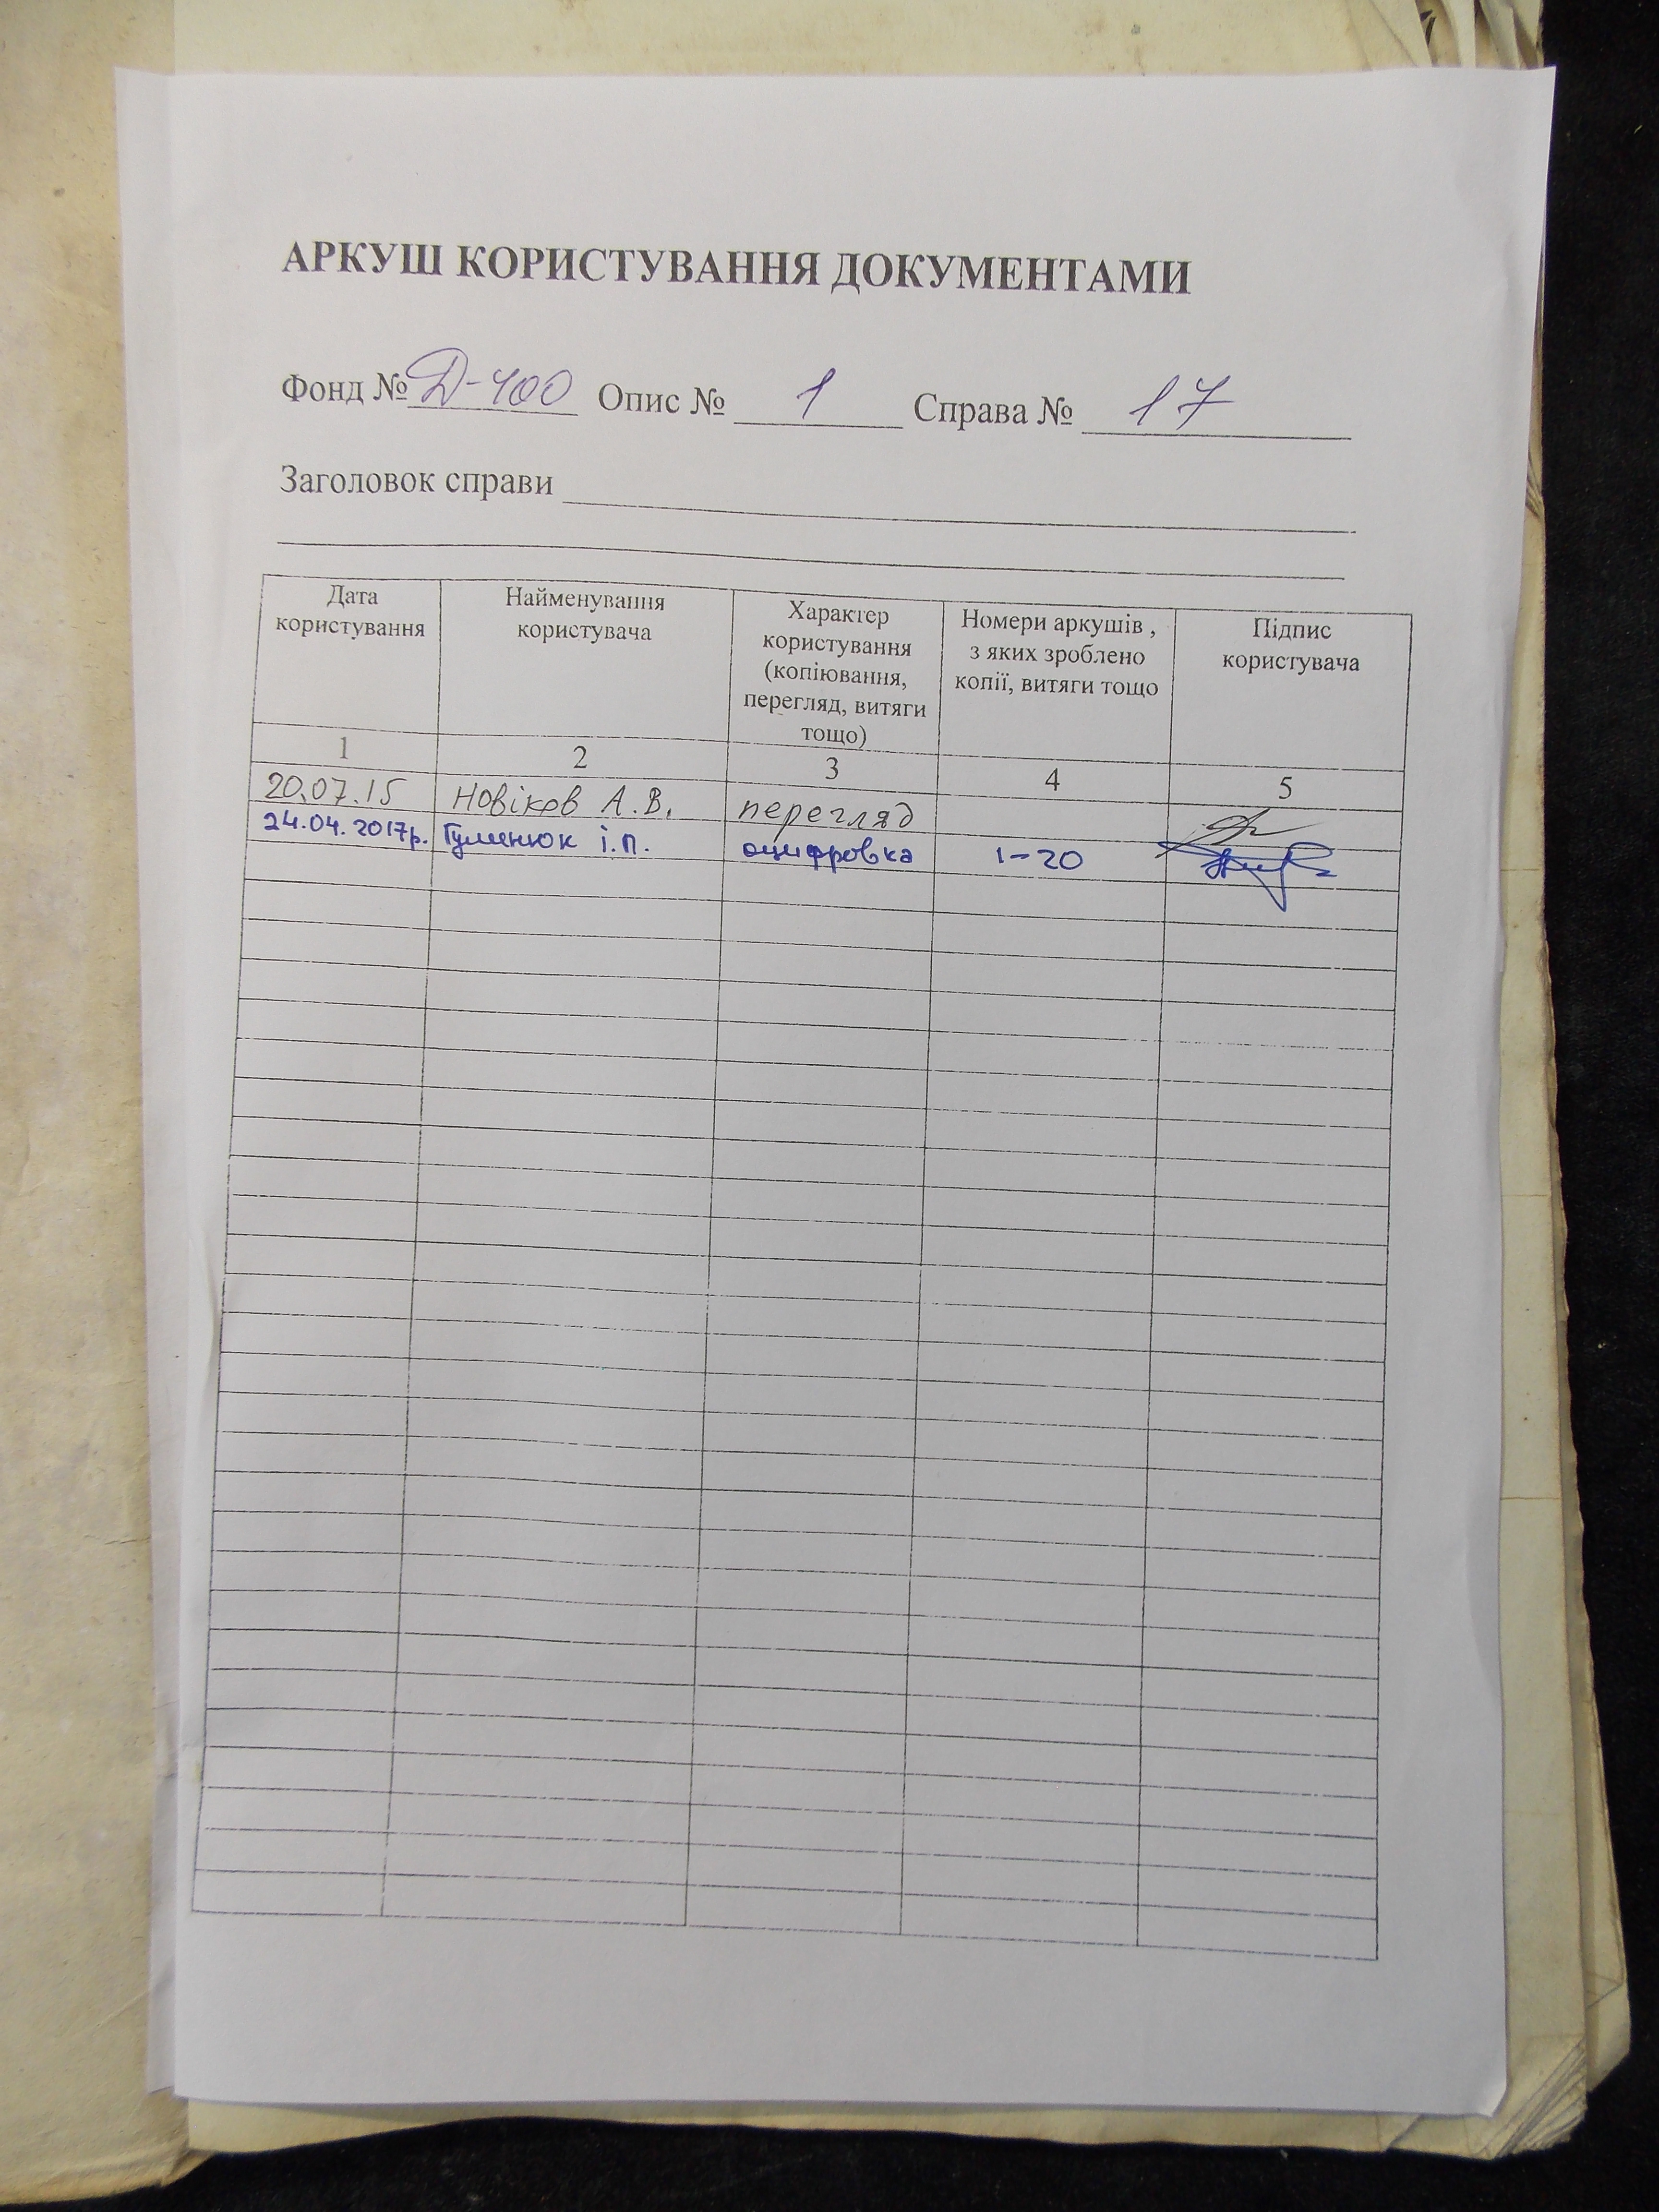 АРКУШ КОРИСТУВАННЯ ДОКУМЕНТАМИ
Фонд № Д-400 Опис № 1 Справа № 17
Заголовок справи
Дата користування
Найменування користувача
Характер користування (копіювання, перегляд, витяги тощо)
Номери аркушів , з яких зроблено копії, витяги тощо
Підпис користувача
1 2 3 4 5
20.07.15 Новіков А.В. перегляд
24.04.2017р. Гуменюк І.П. оцифровка 1-20